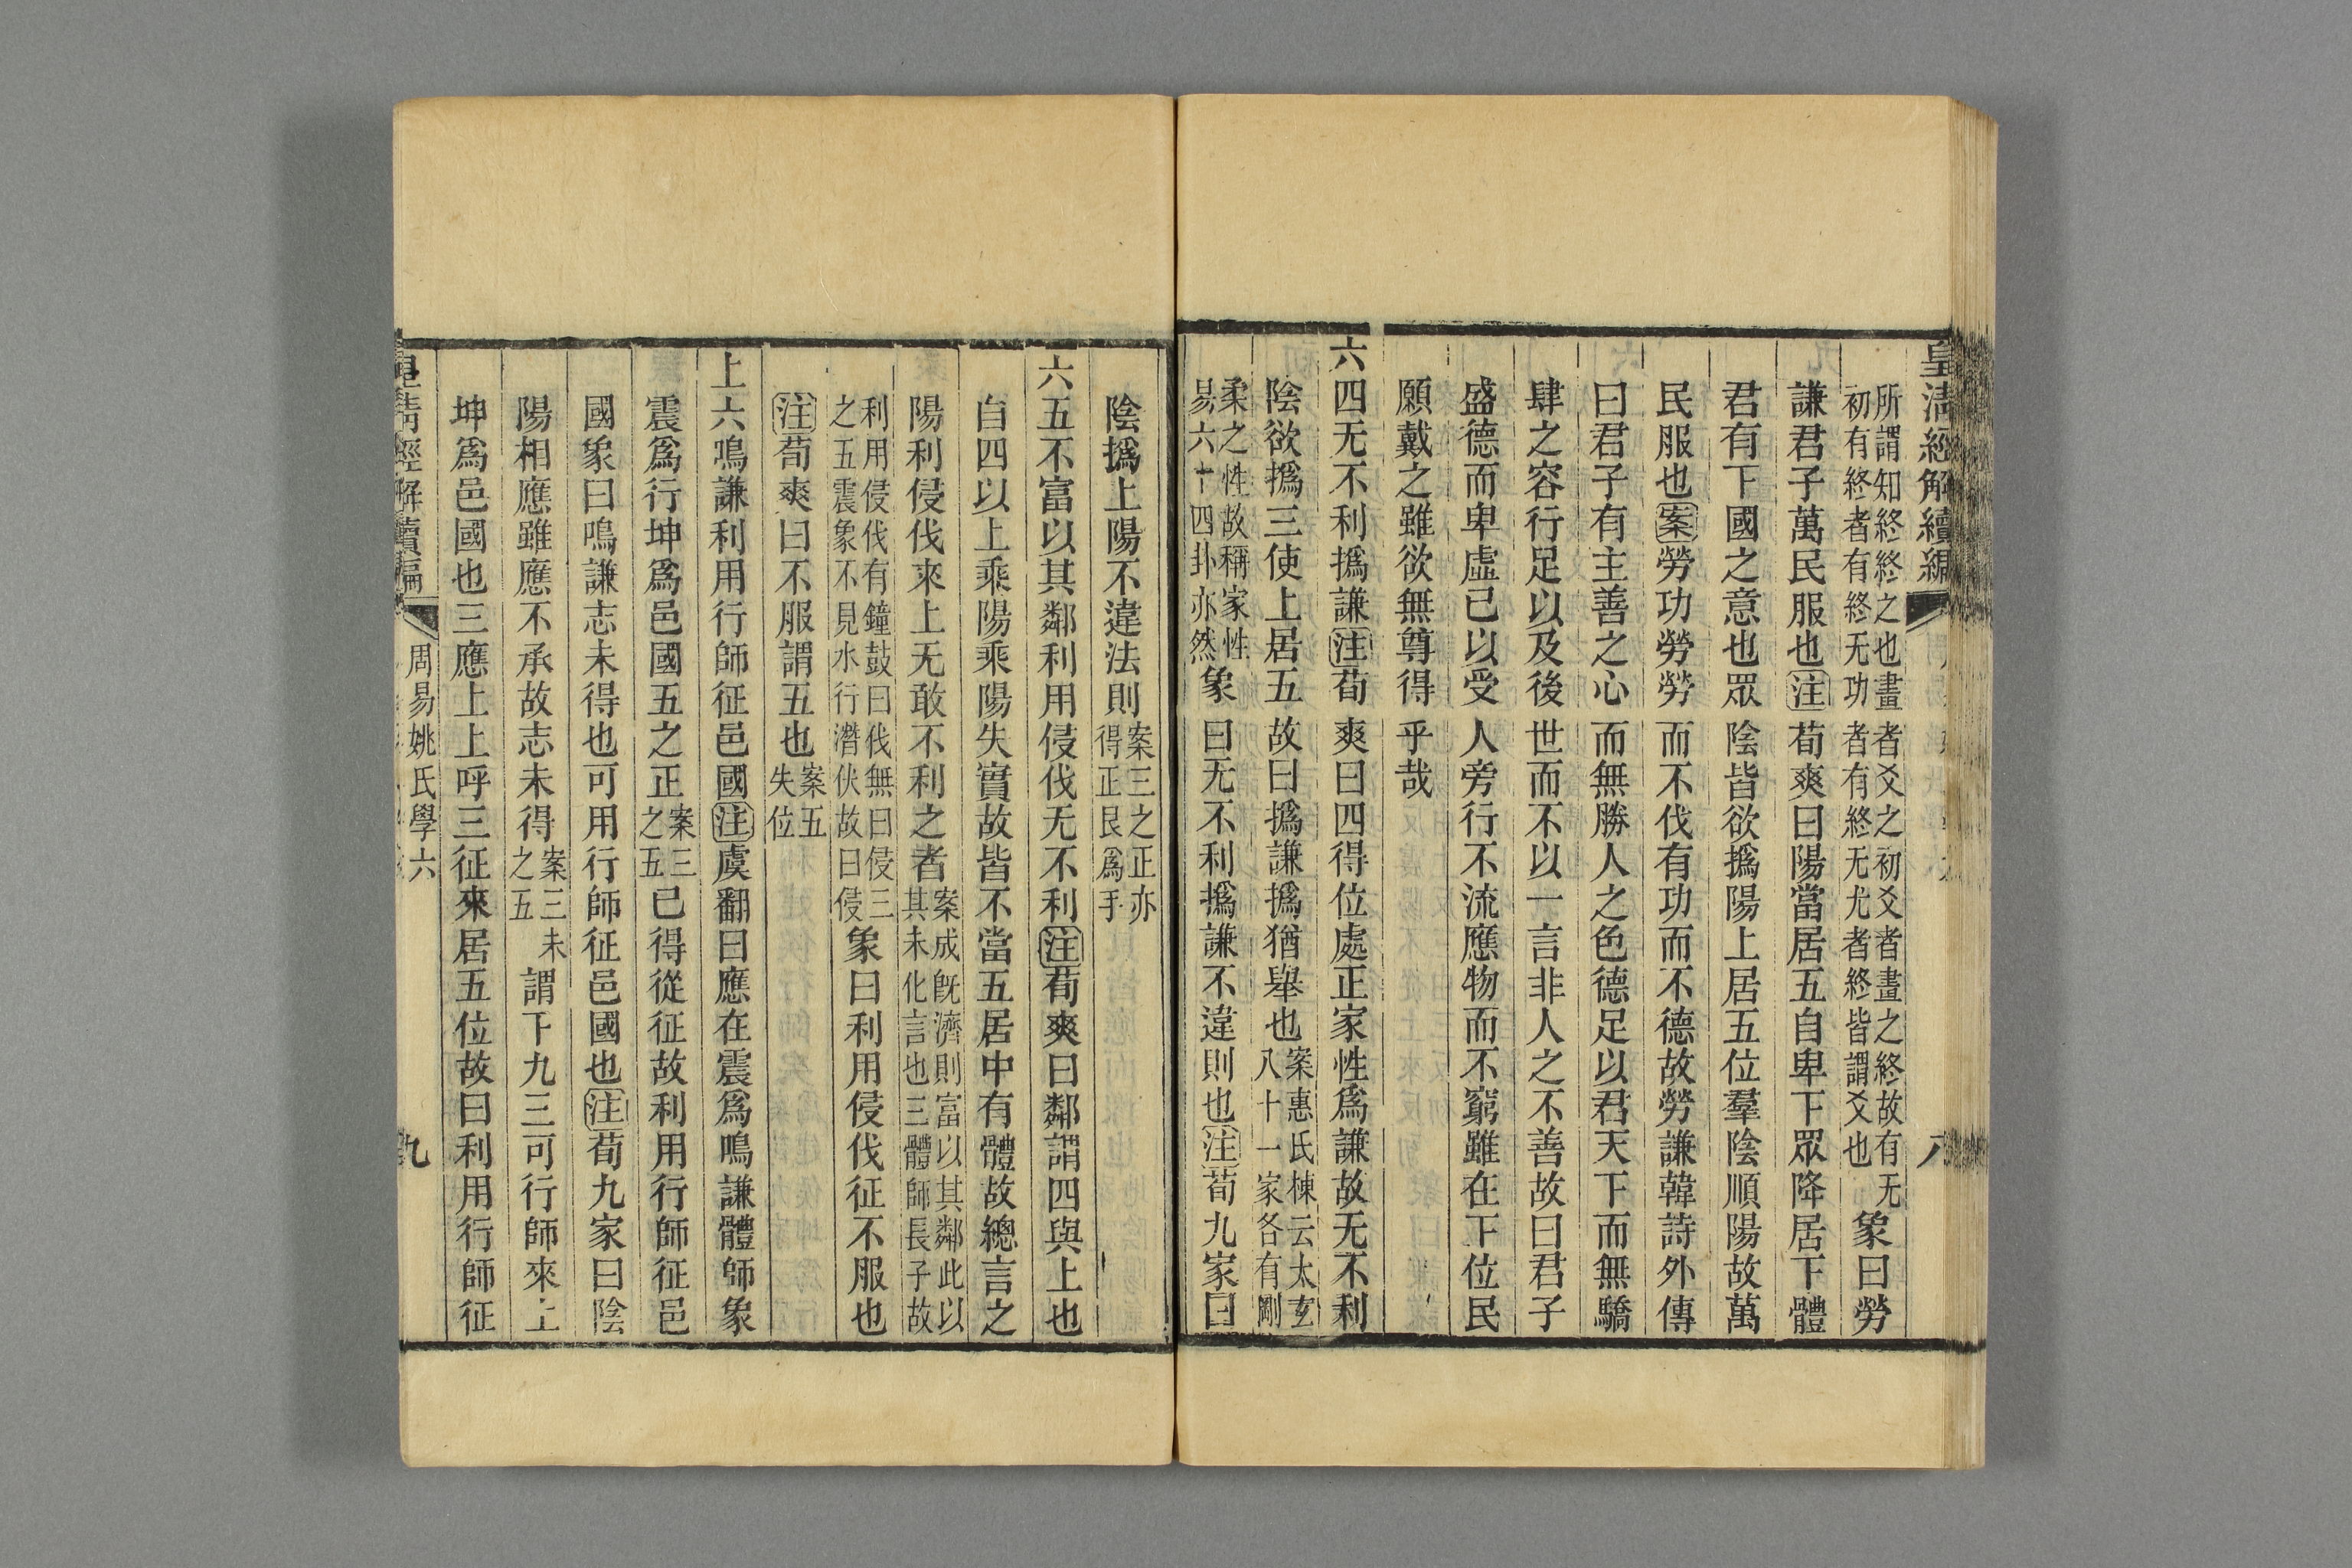 皇清經解續編
八
所謂知終終之也畫者爻之初爻者畫之終故有无
初有終者有終无功者有終无尤者終皆謂爻也
象曰勞
謙君子萬民服也注荀爽曰陽當居五自卑下眾降居下體
君有下國之意也眾陰皆欲撝陽上居五位羣陰順陽故萬
民服也案勞功勞勞而不伐有功而不德故勞謙韓詩外傳
曰君子有主善之心而無勝人之色德足以君天下而無驕
肆之容行足以及後世而不以一言非人之不善故曰君子
盛德而卑虛己以受人旁行不流應物而不窮雖在下位民
願戴之雖欲無尊得乎哉
六四无不利撝謙注荀爽曰四得位處正家性爲謙故无不利
陰欲撝三使上居五故曰撝謙撝猶舉也
案惠氏棟云太玄
八十一家各有剛
柔之性故稱家性
易六十四卦亦然
象曰无不利撝謙不違則也注荀九家曰
陰撝上陽不違法則
案三之正亦
得正艮爲手
六五不富以其鄰利用侵伐无不利注荀爽曰鄰謂四與上也
自四以上乘陽乘陽失實故皆不當五居中有體故總言之
陽利侵伐來上无敢不利之者
案成旣濟則富以其鄰此以
其未化言也三體師長子故
利用侵伐有鐘鼓曰伐無曰侵三
之五震象不見水行潛伏故曰侵
象曰利用侵伐征不服也
注荀爽曰不服謂五也
案五
失位
上六鳴謙利用行師征邑國注虞翻曰應在震爲鳴謙體師象
震爲行坤爲邑國五之正
案三
之五
已得從征故利用行師征邑
國象曰鳴謙志未得也可用行師征邑國也注荀九家曰陰
陽相應雖應不承故志未得
案三未
之五
謂下九三可行師來上
坤爲邑國也三應上上呼三征來居五位故曰利用行師征
皇清經解續編
周易姚氏學六
九